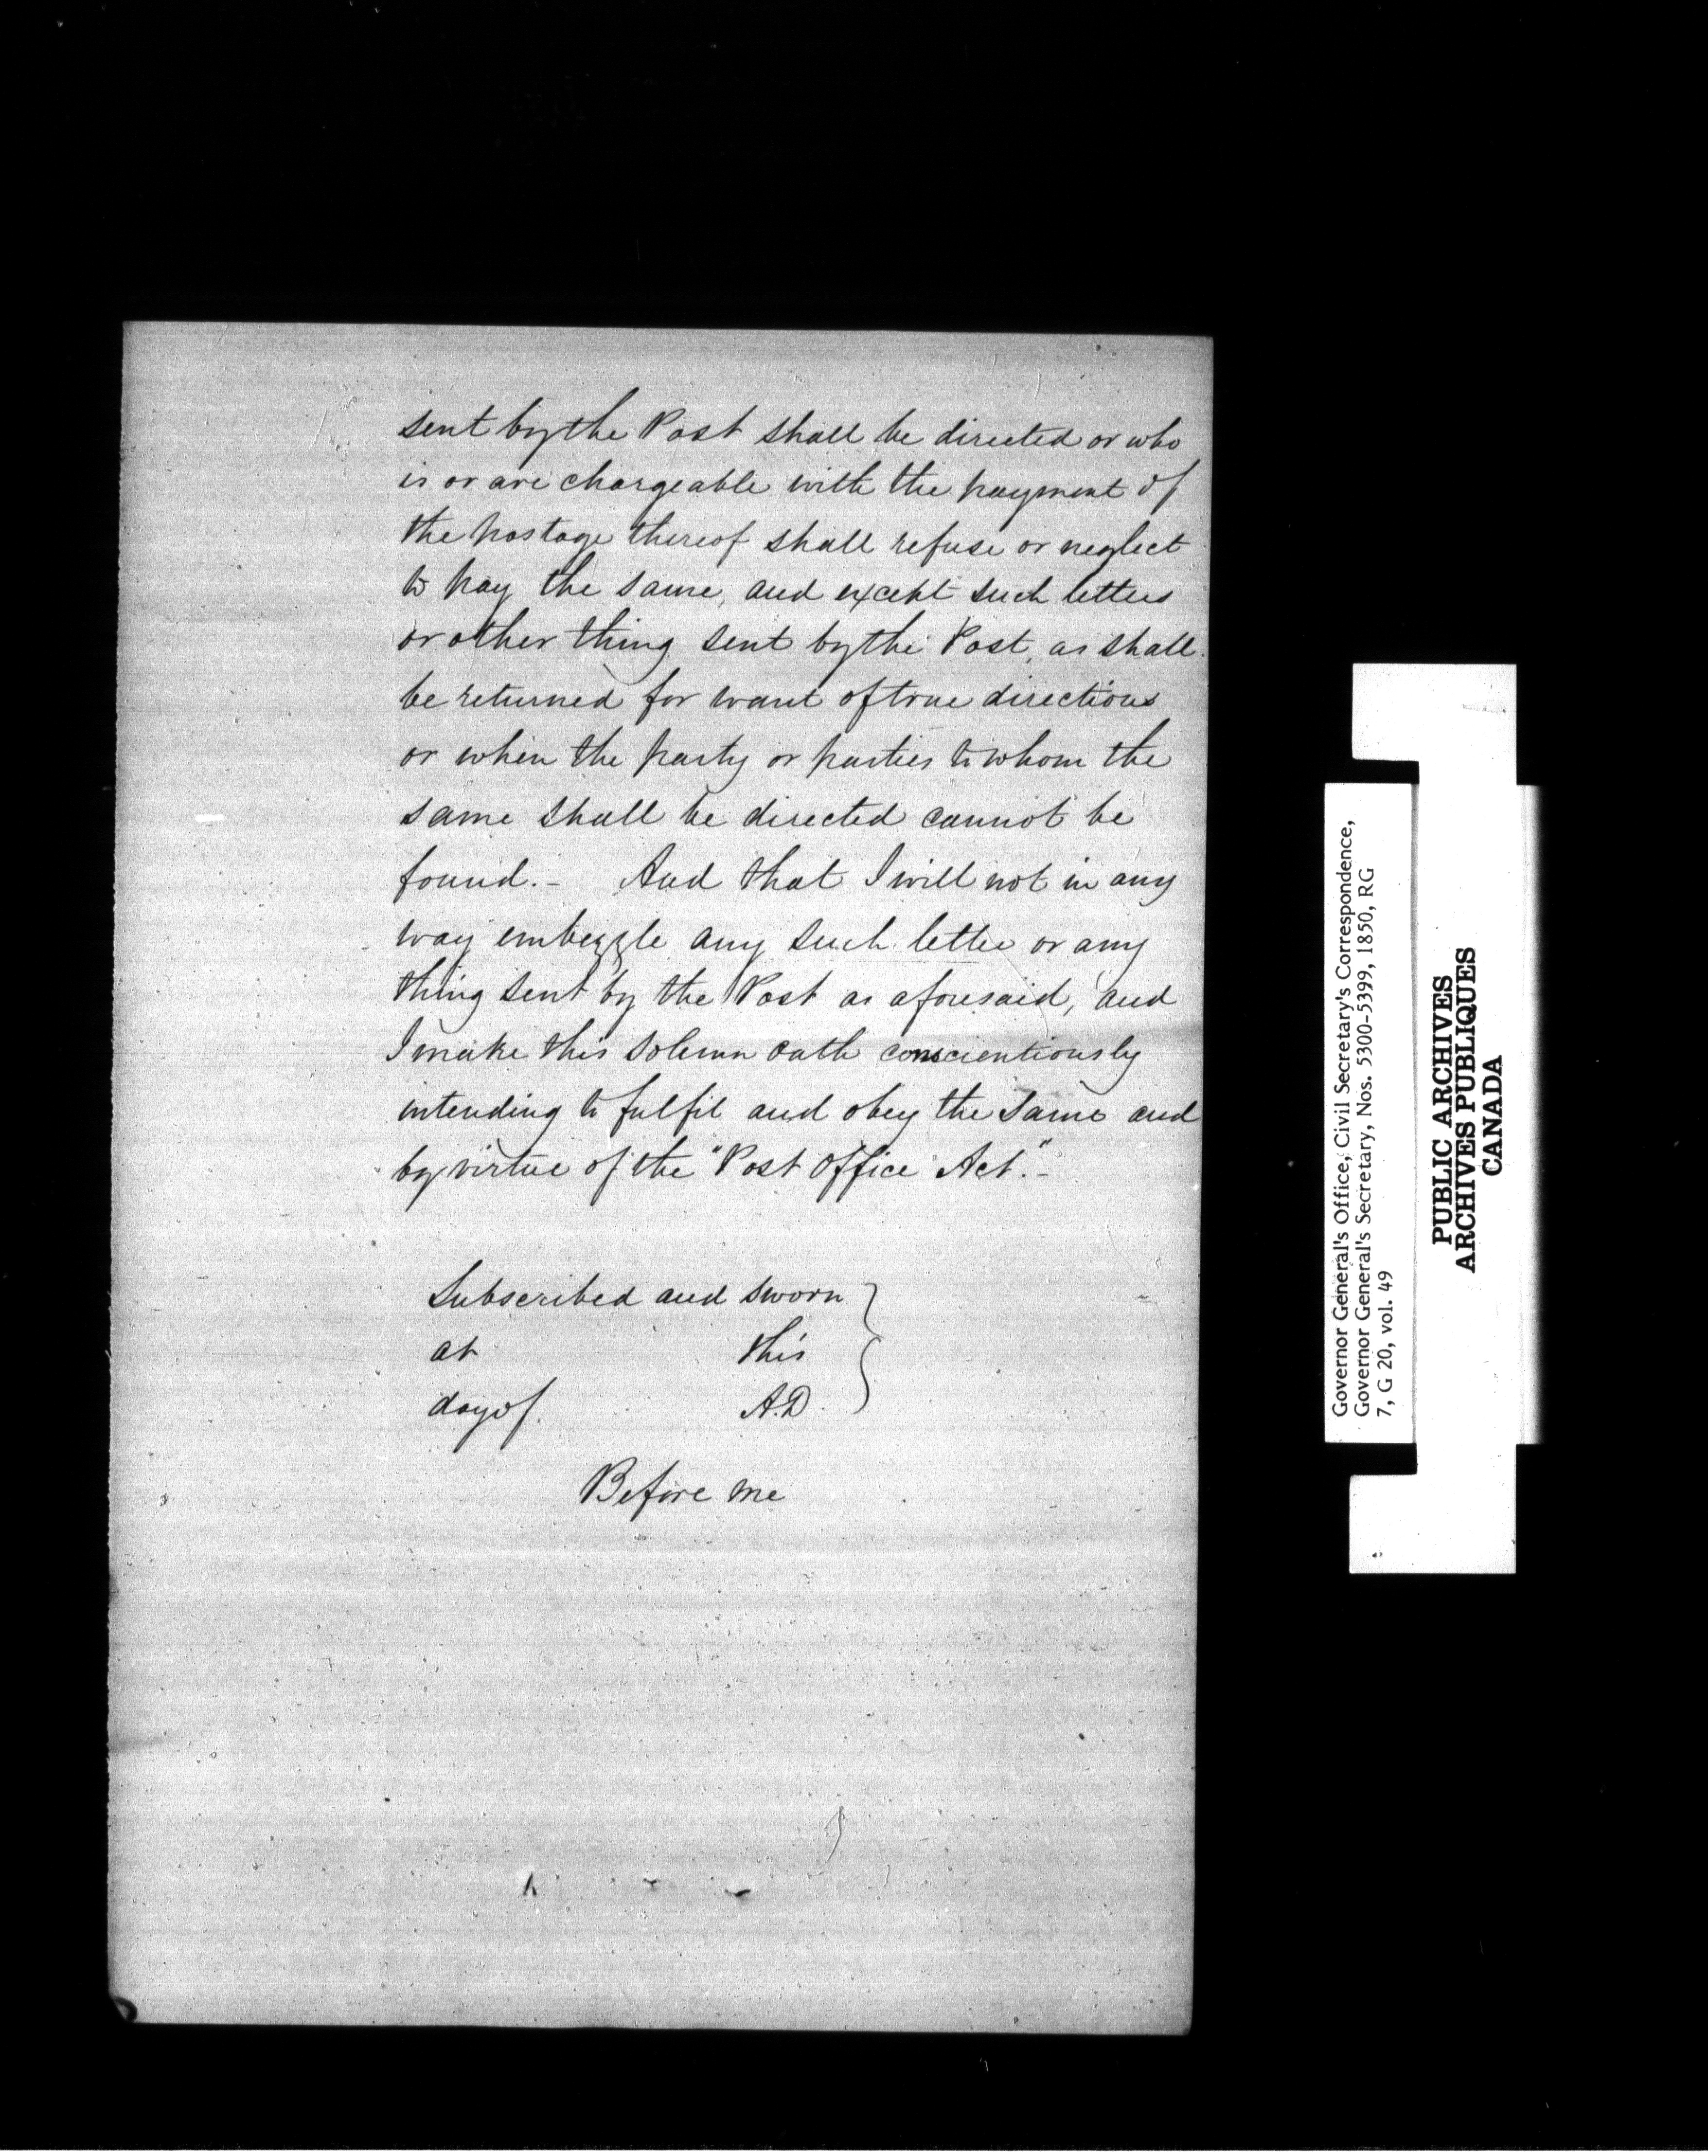 sent by the Post shall be directed or who
is or are chargeable with the payment of
the postage thereof shall refuse or neglect
to pay the same, and except such letters
or other thing sent by the Post, as shall
be returned for want of true directions
or when the party or parties to whom the
same shall be directed cannot be
found.- And that I will not in any
way embezzle any such letter or any
thing sent by the Post as aforesaid, and
I make this solemn oath conscientiously
intending to fulfil and obey the same and
by virtue of the "Post Office Act."-
Subscribed and sworn
at this
day of A.D.
Before me
Governor General's Office, Civil Secretary's Correspondence,
Governor General's Secretary, Nos. 5300-5399, 1850, RG
7, G 20, vol. 49
PUBLIC ARCHIVES
ARCHIVES PUBLIQUES
CANADA